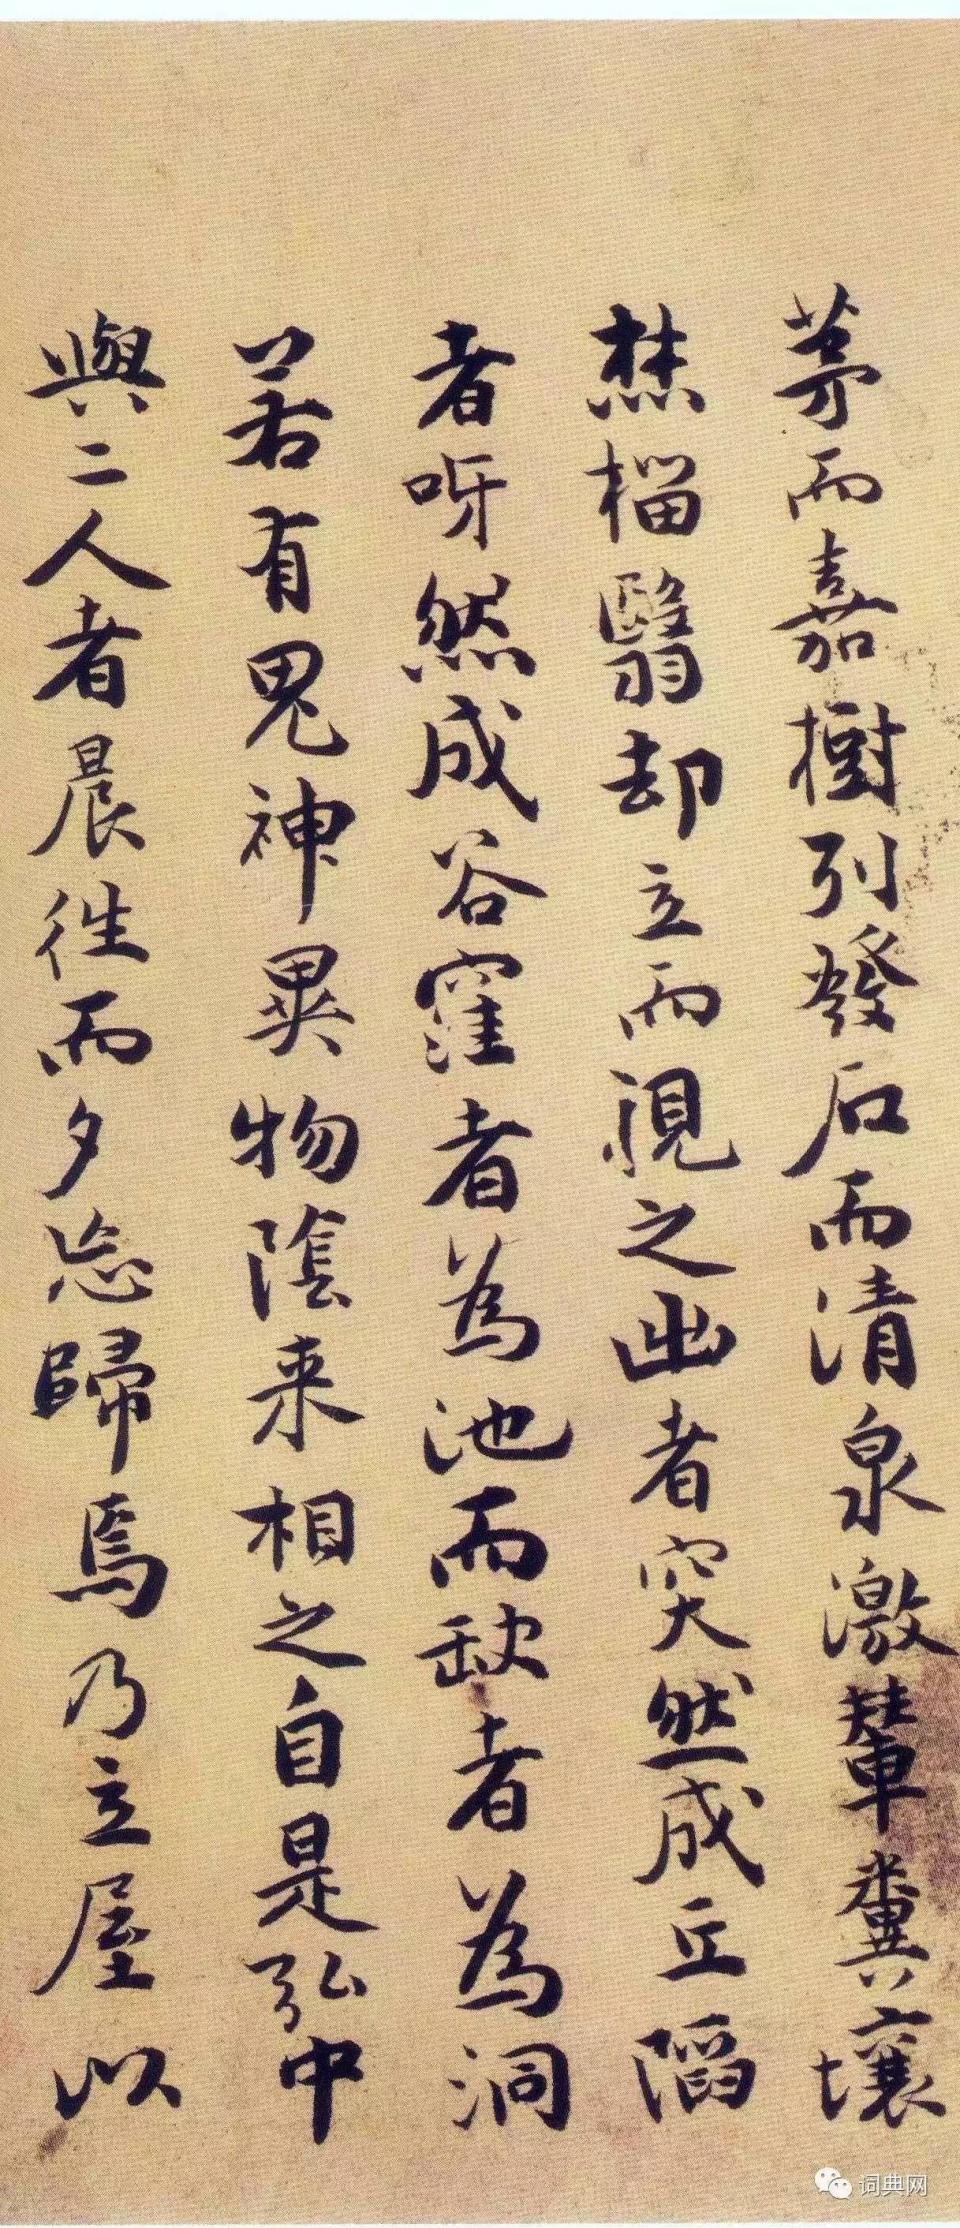 茅而嘉樹列發石而清泉激輦糞壤
焚榴翳却立而視之出者突然成丘陷
者呀然成谷窪者為池而缺者為洞
若有鬼神異物陰来相之自是弘中
與二人者晨往而夕忘歸焉乃立屋以
词典网